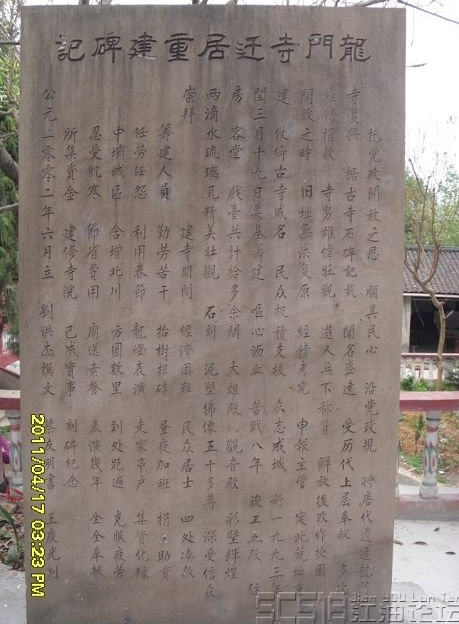 龍門寺迁居重建碑記
托党政開放之恩 順其民心 沿党政規 将唐代遺迹龍門
寺复兴 据古寺石碑記载 聞名盛遠 受历代上层奉献 多次
維修捐款 寺势雄偉壯觀 遊人無不称贊 解放後改作校園
開放之時 旧址無法复原 經精考究 申報主管 定此荒坵重
建 仗倚古寺威名 民众极積支援 众志成城 於一九九三年
閏三月十九日奠基籌建 嘔心沥血 苦戰八年 竣工五殿 僧
房 客堂 戲臺共計拾多余間 大雄殿 觀音殿 彩壁輝煌
两滴水琉璃瓦精美壯觀 石刻 泥塑佛像五十多尊 深受信众
崇拜 建寺期間 經濟困难 民众居士 四处凑款
籌建人員 勤劳苦干 抬樹担磚 昼夜加班 捐 助資
任劳任怨 利用春節 龍燈表演 走家串户 集資化緣
中壩城區 含增北川 方圆數里 到处跑遍 克服疲劳
忍受飢寒 節省費用 廟送素餐 表演幾年 全全奉献
所集資金 建修寺院 已成實事 刻碑紀念
公元二零零二年六月立 劉洪杰撰文 友明書 王度光刻
2011/04/17 03:23 PM
SC518 江油论坛